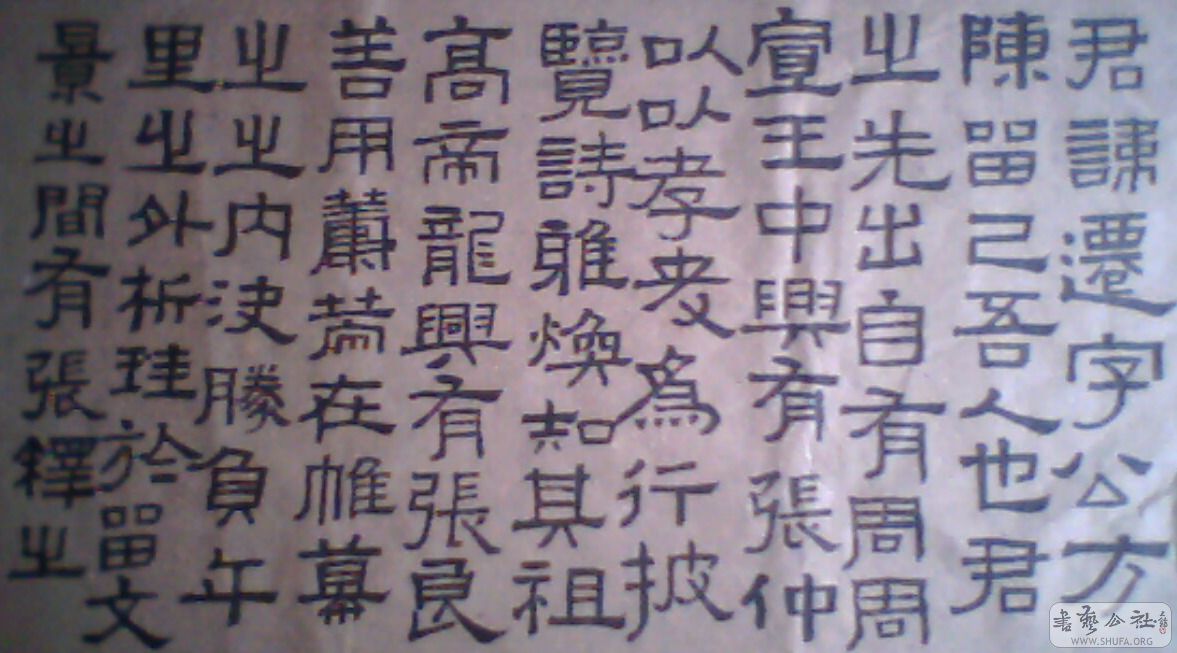 君諱遷字公方
陳留己吾人也君
之先出自有周周
宣王中興有張仲
以以孝友為行披
覽詩雅煥知其祖
高帝龍興有張良
善用籌策在帷幕
之之內決勝負千
里之外析珪於留文
景之間有張釋之
書藝公社
WWW.SHUFA.ORG